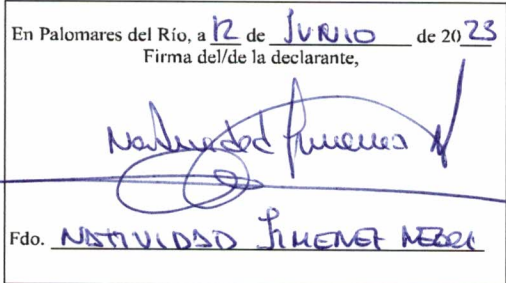 En Palomares del Río, a 12 de JUNIO de 2023
Firma del/de la declarante,
Natividad Jimenez N
Fdo. NATIVIDAD JIMENEZ